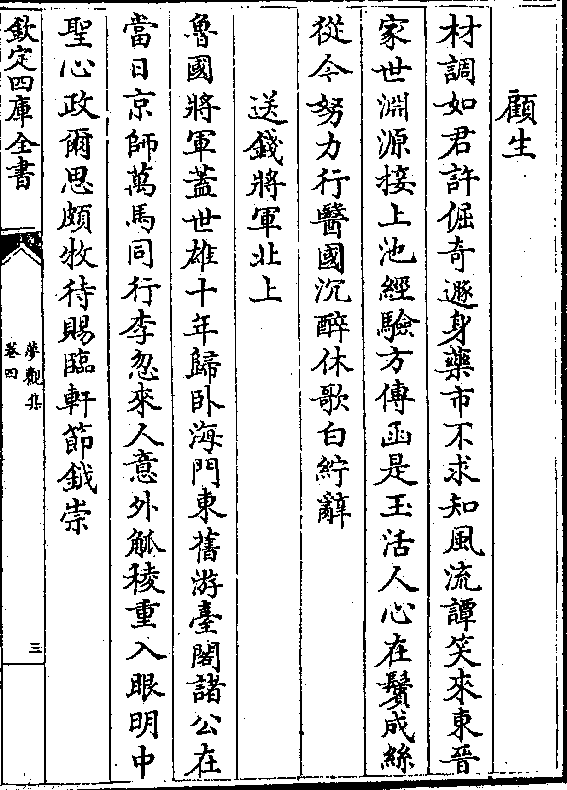 顧生
材調如君許倔奇遯身藥市不求知風流譚笑來東晉
家世淵源接上池經驗方傳函是玉活人心在鬢成絲
從今努力行醫國沉醉休歌白紵辭
送錢將軍北上
魯國將軍蓋世雄十年歸卧海門東舊游臺閣諸公在
當日京師萬馬同行李忽來人意外觚稜重入眼明中
聖心政爾思頗牧待賜臨軒節鉞崇
欽定四庫全書
夢觀集
卷四
三